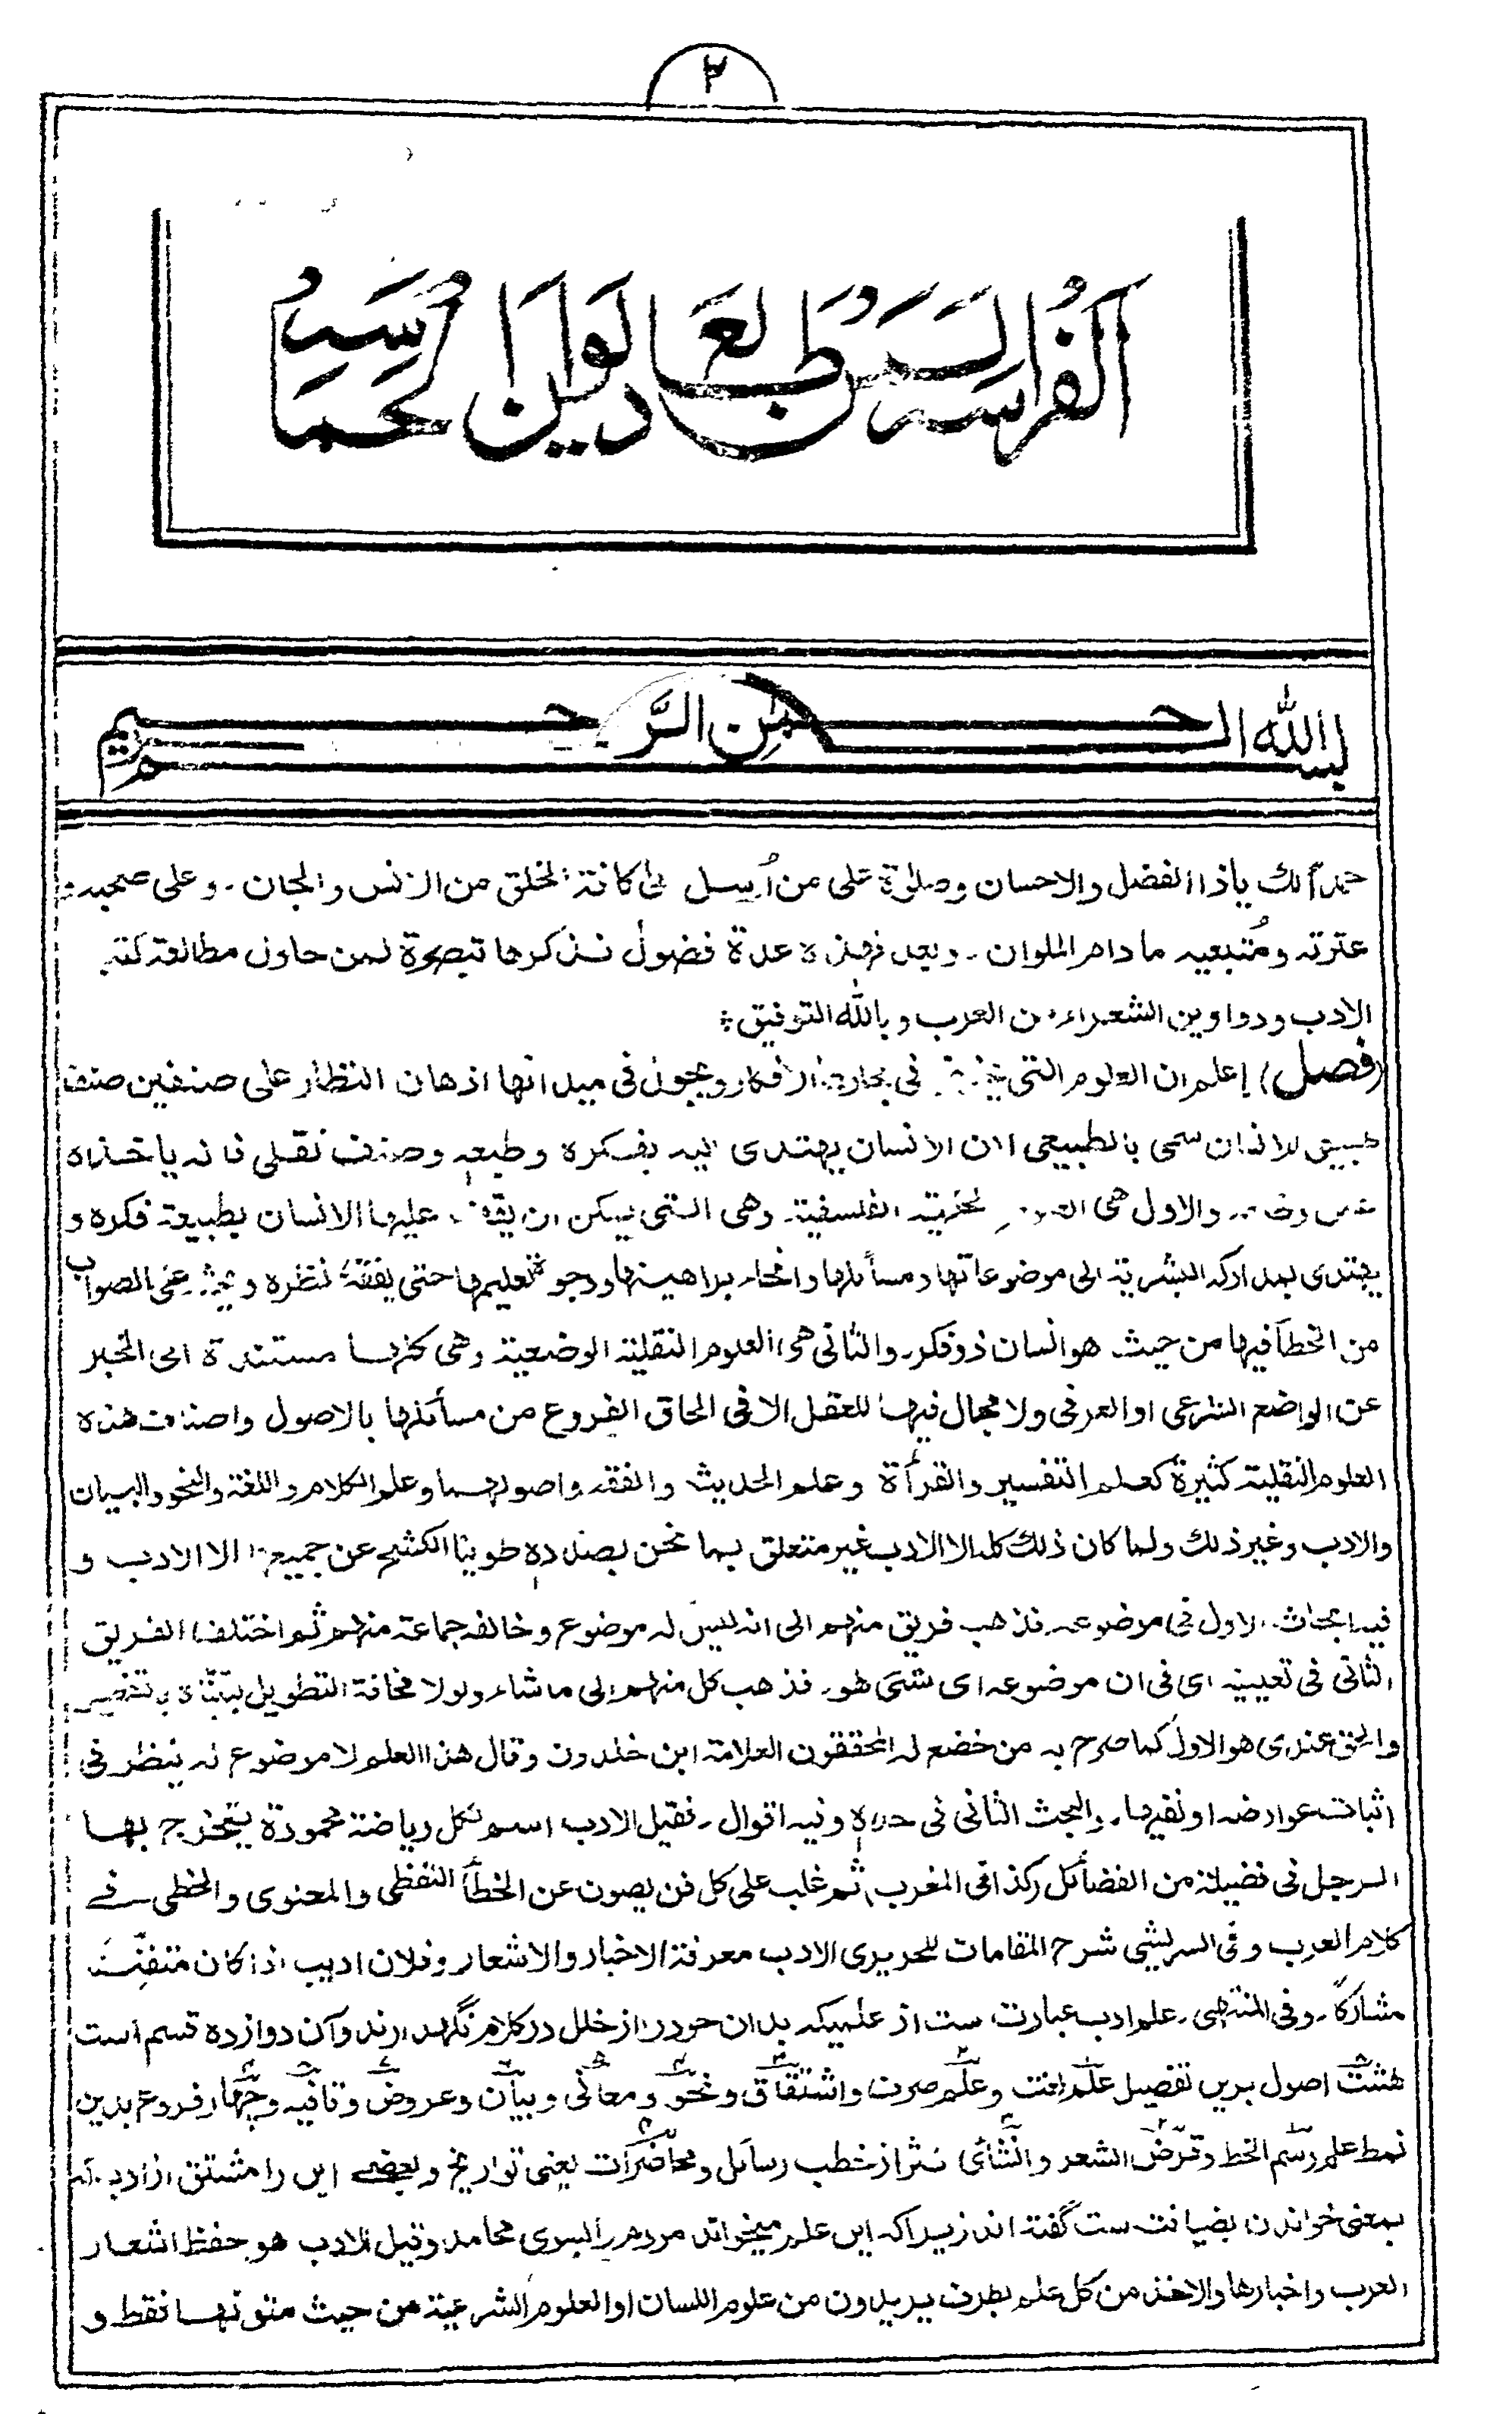 ٢
الفراسة لمن طالع دواوين الحماسة
بسم الله الرحمن الرحيم
حمدا لك ياذا الفضل والاحسان وصلوة على من أُرسل الى كافة الخلق من الانس والجان۔ وعلى صحبه و
عترته ومُتبعيه ما دام الملوان۔ وبعد فهذه عدة فصول نذكرها تبصرة لمن حاول مطالعة كتب
الادب ودواوين الشعراء من العرب وبالله التوفيق
(فصل) إعلم ان العلوم التى في بحارها الافكار وتجول فى ميدانها اذهان النظار على صنفين صنف
طبيعى للانسان سمى بالطبيعى لان الانسان يهتدى اليه بفكره وطبعه وصنف نقلى فانه ياخذه
عمن وضعه والاول هى العلوم الحكمية الفلسفية وهى التى يمكن ان يقف عليها الانسان بطبيعة فكره و
يهتدى بمداركه البشرية الى موضوعاتها ومسائلها وانحاء براهينها ووجوه تعليمها حتى يفقه نظره وبحثه على الصواب
من الخطأ فيها من حيث هو انسان ذو فكر۔ والثانى هى العلوم النقلية الوضعية وهى كلها مستندة الى الخبر
عن الواضع الشرعى او العرفى ولا مجال فيها للعقل الا فى الحاق الفروع من مسائلها بالاصول واصناف هذه
العلوم النقلية كثيرة كعلم التفسير والقرأة وعلم الحديث والفقه واصولهما وعلم الكلام واللغة والنحو والبيان
والادب وغير ذلك ولما كان ذلك كله الا الادب غير متعلق بما نحن بصدده طوينا الكشح عن جميعها الا الادب و
فيه ابحاث۔ الاول فى موضوعه فذهب فريق منهم الى انه ليس له موضوع وخالفه جماعة منهم ثم اختلف الفريق
الثانى فى تعيينه اى فى ان موضوعه اى شئ هو۔ فذهب كل منهم الى ما شاء ولولا مخافة التطويل لبيناه بالتفصيل
والحق عندى هو الاول كما صرح به من خضع له المحققون العلامة ابن خلدون وقال هذا العلم لا موضوع له ينظر فى
اثبات عوارضه او نفيها۔ والبحث الثانى فى حده وفيه اقوال۔ فقيل الادب اسم لكل رياضة محمودة يتخرج بها
الرجل فى فضيلة من الفضائل (كذا فى المغرب) ثم غلب على كل فن يصون عن الخطأ اللفظى والمعنوى والخطى فے
كلام العرب وفى السريشى شرح المقامات للحريرى الادب معرفة الاخبار والاشعار وفلان اديب اذا كان متفننا
مشاركًا۔ وفى المنتهى۔ علم ادب عبارت ست از علميكه بدان خود را از خلل در كلام نگهدارند وآن دوازده قسم است
هشت اصول بريں تفصيل علم لغت وعلم صرف واشتقاق ونحو ومعانى وبيان وعروض وقافيه وچهار فروع بدين
نمط علم رسم الخط وقرض الشعر وانشائ نثر از خطب رسائل ومحاضرات يعنى تواريخ وبعضے ايں را مشتق از ادب كه
بمعنى خواندن بضيافت ست گفته اند زيراكه ايں علم ميخواند مردم را بسوى محامد وقيل الادب هو حفظ اشعار
العرب واخبارها والاخذ من كل علم بطرف يريدون من علوم اللسان او العلوم الشرعية من حيث متونها فقط و